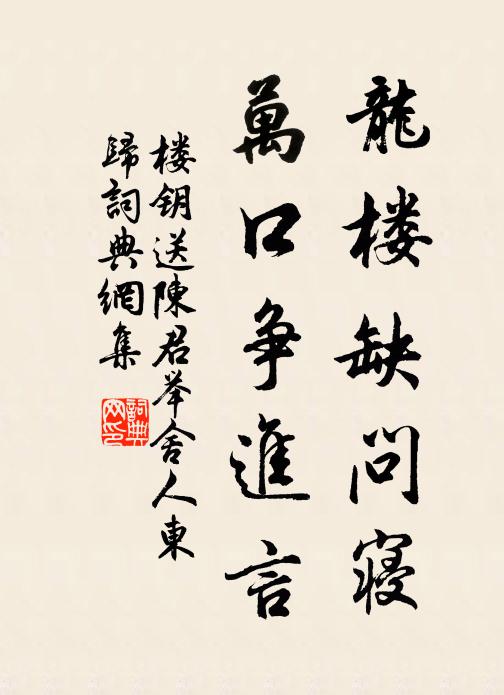 龍楼缺問寝
萬口争進言
楼钥送陳君举舍人東
歸詞典網集
詞典网印